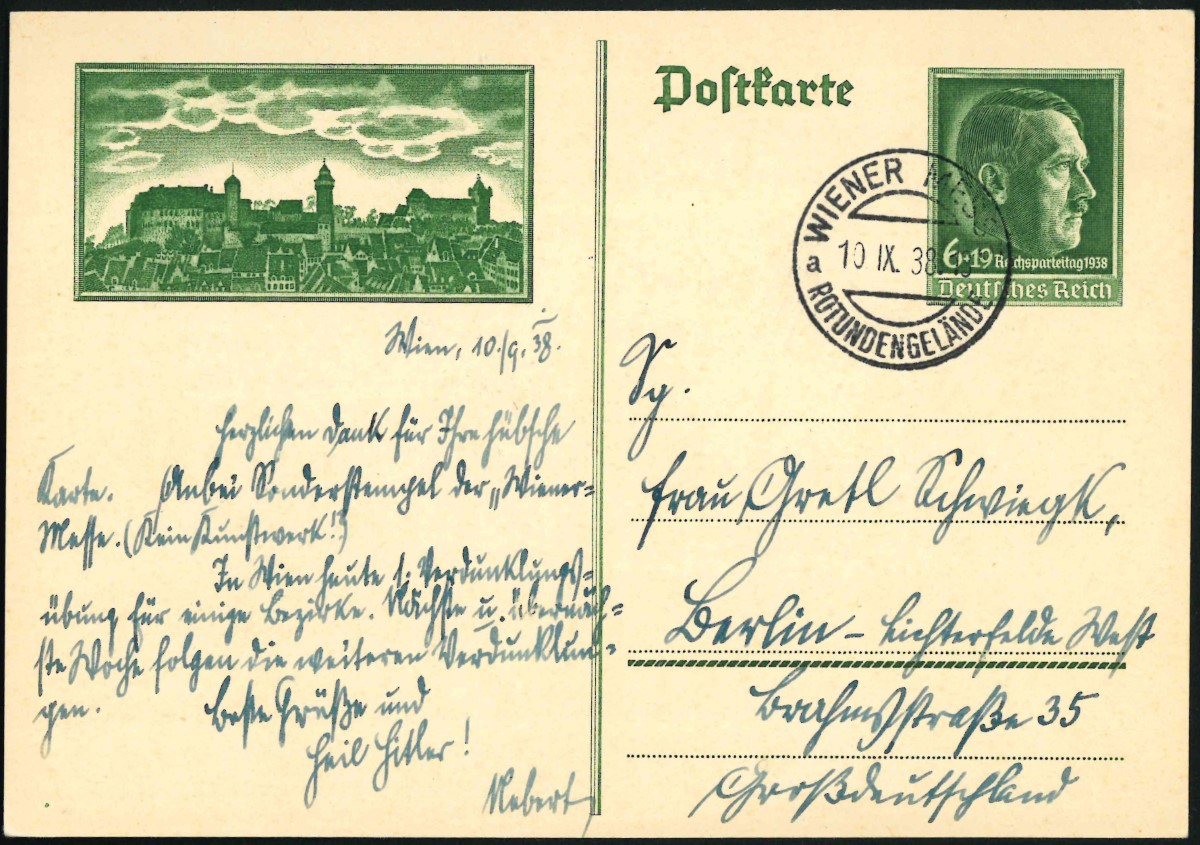 Wien, 10./9. 38.
Herzlichen Dank für Ihre hübsche
Karte. Anbei Sonderstempel der „Wiener-
Messe. (Kein Kunstwerk!?)
In Wien heute 1. Verdunklungs-
übung für einige Bezirke. Nächste u. übernäch-
ste Woche folgen die weiteren Verdunklun-
gen.
Beste Grüße und
Heil Hitler!
Postkarte
WIENER MESSE
a 10 IX. 38.
ROTUNDENGELÄNDE
6+19 Reichsparteitag 1938
Deutsches Reich
Frau Gretl Schwiegk,
Berlin – Lichterfelde West
Brahmsstraße 35
Großdeutschland